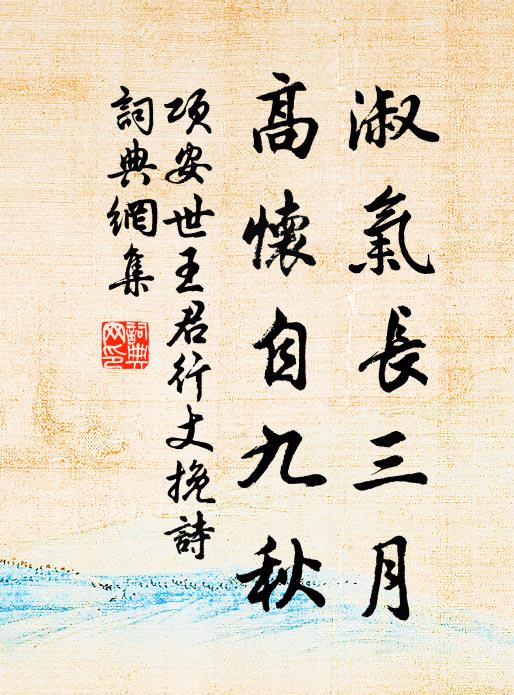 淑氣長三月
高懷自九秋
項安世王君行丈挽詩
詞典網集
詞典網印